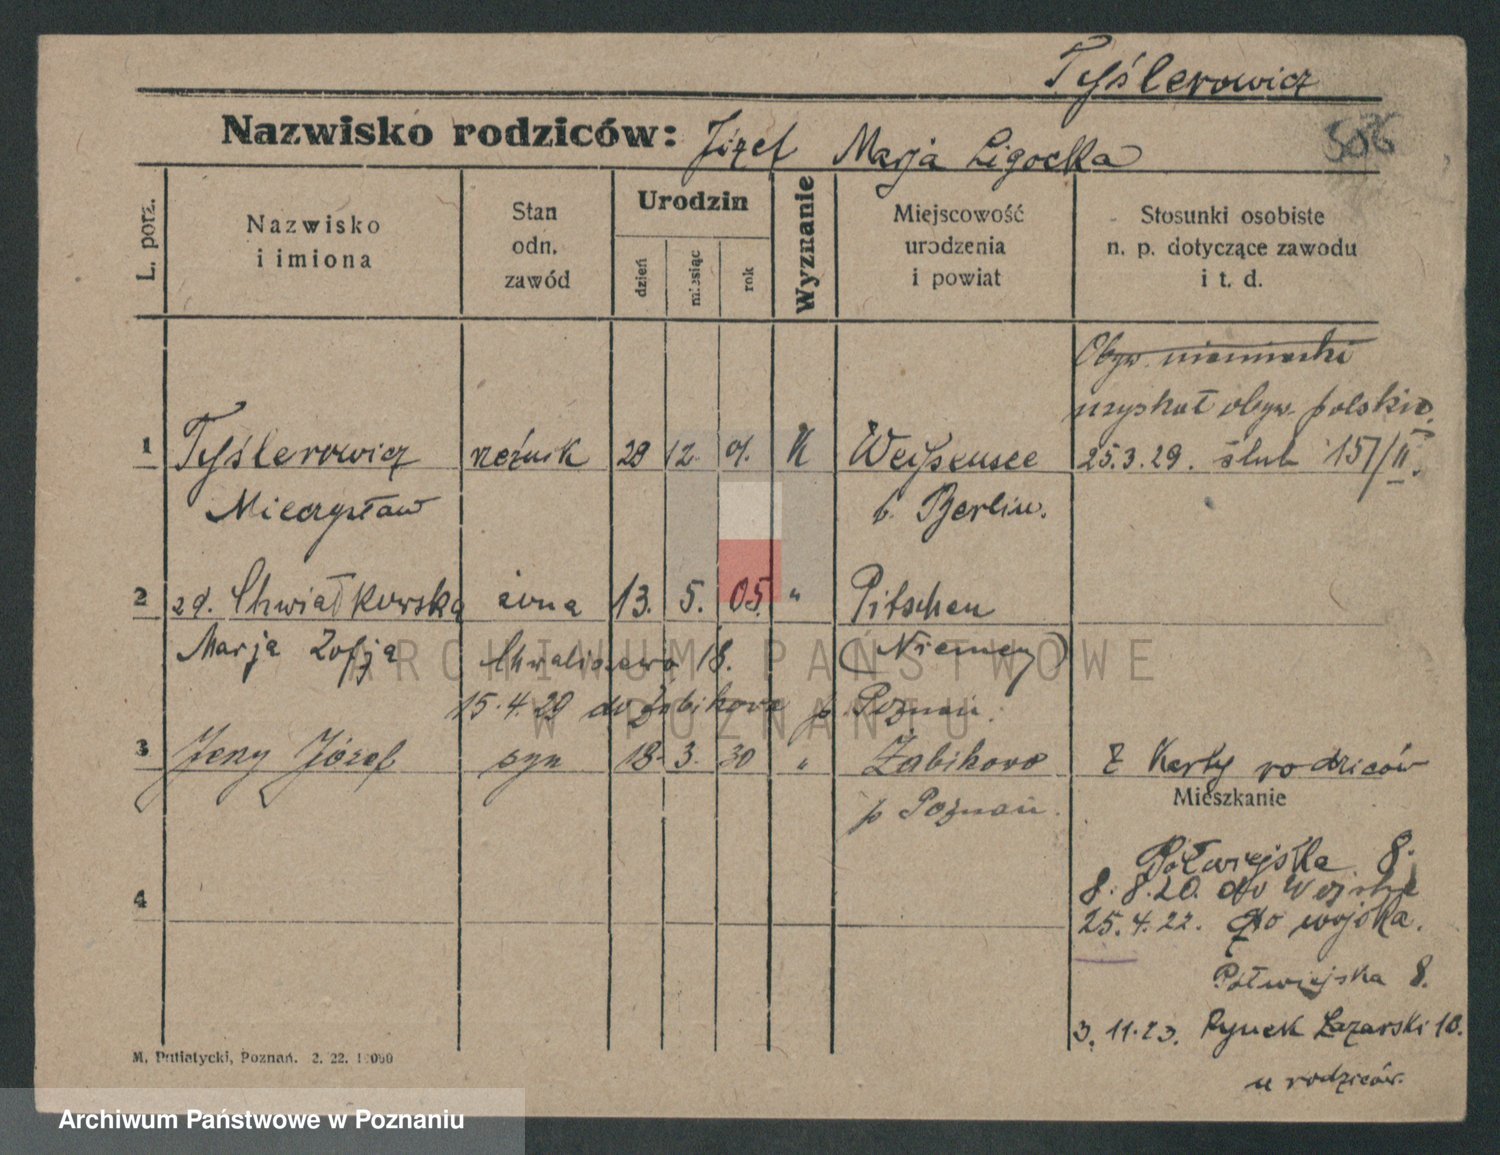 Tyślerowicz
Nazwisko rodziców: Józef Marja Ligocka
L. porz.
Nazwisko i imiona
Stan odn. zawód
Urodzin
dzień
miesiąc
rok
Wyznanie
Miejscowość urodzenia i powiat
Stosunki osobiste n. p. dotyczące zawodu i t. d.
Obyw. niemiecki
uzyskał obyw. polskie
1 Tyślerowicz rzeźnik 29 12. 01. K Weißensee 25.3.29. ślub 157/II.
Mieczysław b. Berlin.
2 zd. Chwiałkowska żona 13. 5. 05. " Pitschen
Marja Zofja Chwaliszewo 18. (Niemcy)
15.4.29 do Żabikowa p. Poznań.
3 Jerzy Józef syn 18. 3. 30 " Żabikowo Z Karty rodziców
p Poznań.
Mieszkanie
Półwiejska 8.
8.8.20. do Wojska
4
25.4.22. do wojska.
Półwiejska 8.
3.11.23. Rynek Łazarski 10.
u rodziców.
M. Putiatycki, Poznań. 2. 22.
ARCHIWUM PAŃSTWOWE
W POZNANIU
Archiwum Państwowe w Poznaniu